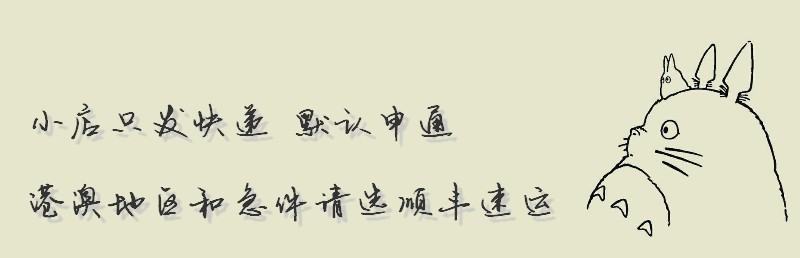 小店只发快递 默认申通
港澳地区和急件请选顺丰速运